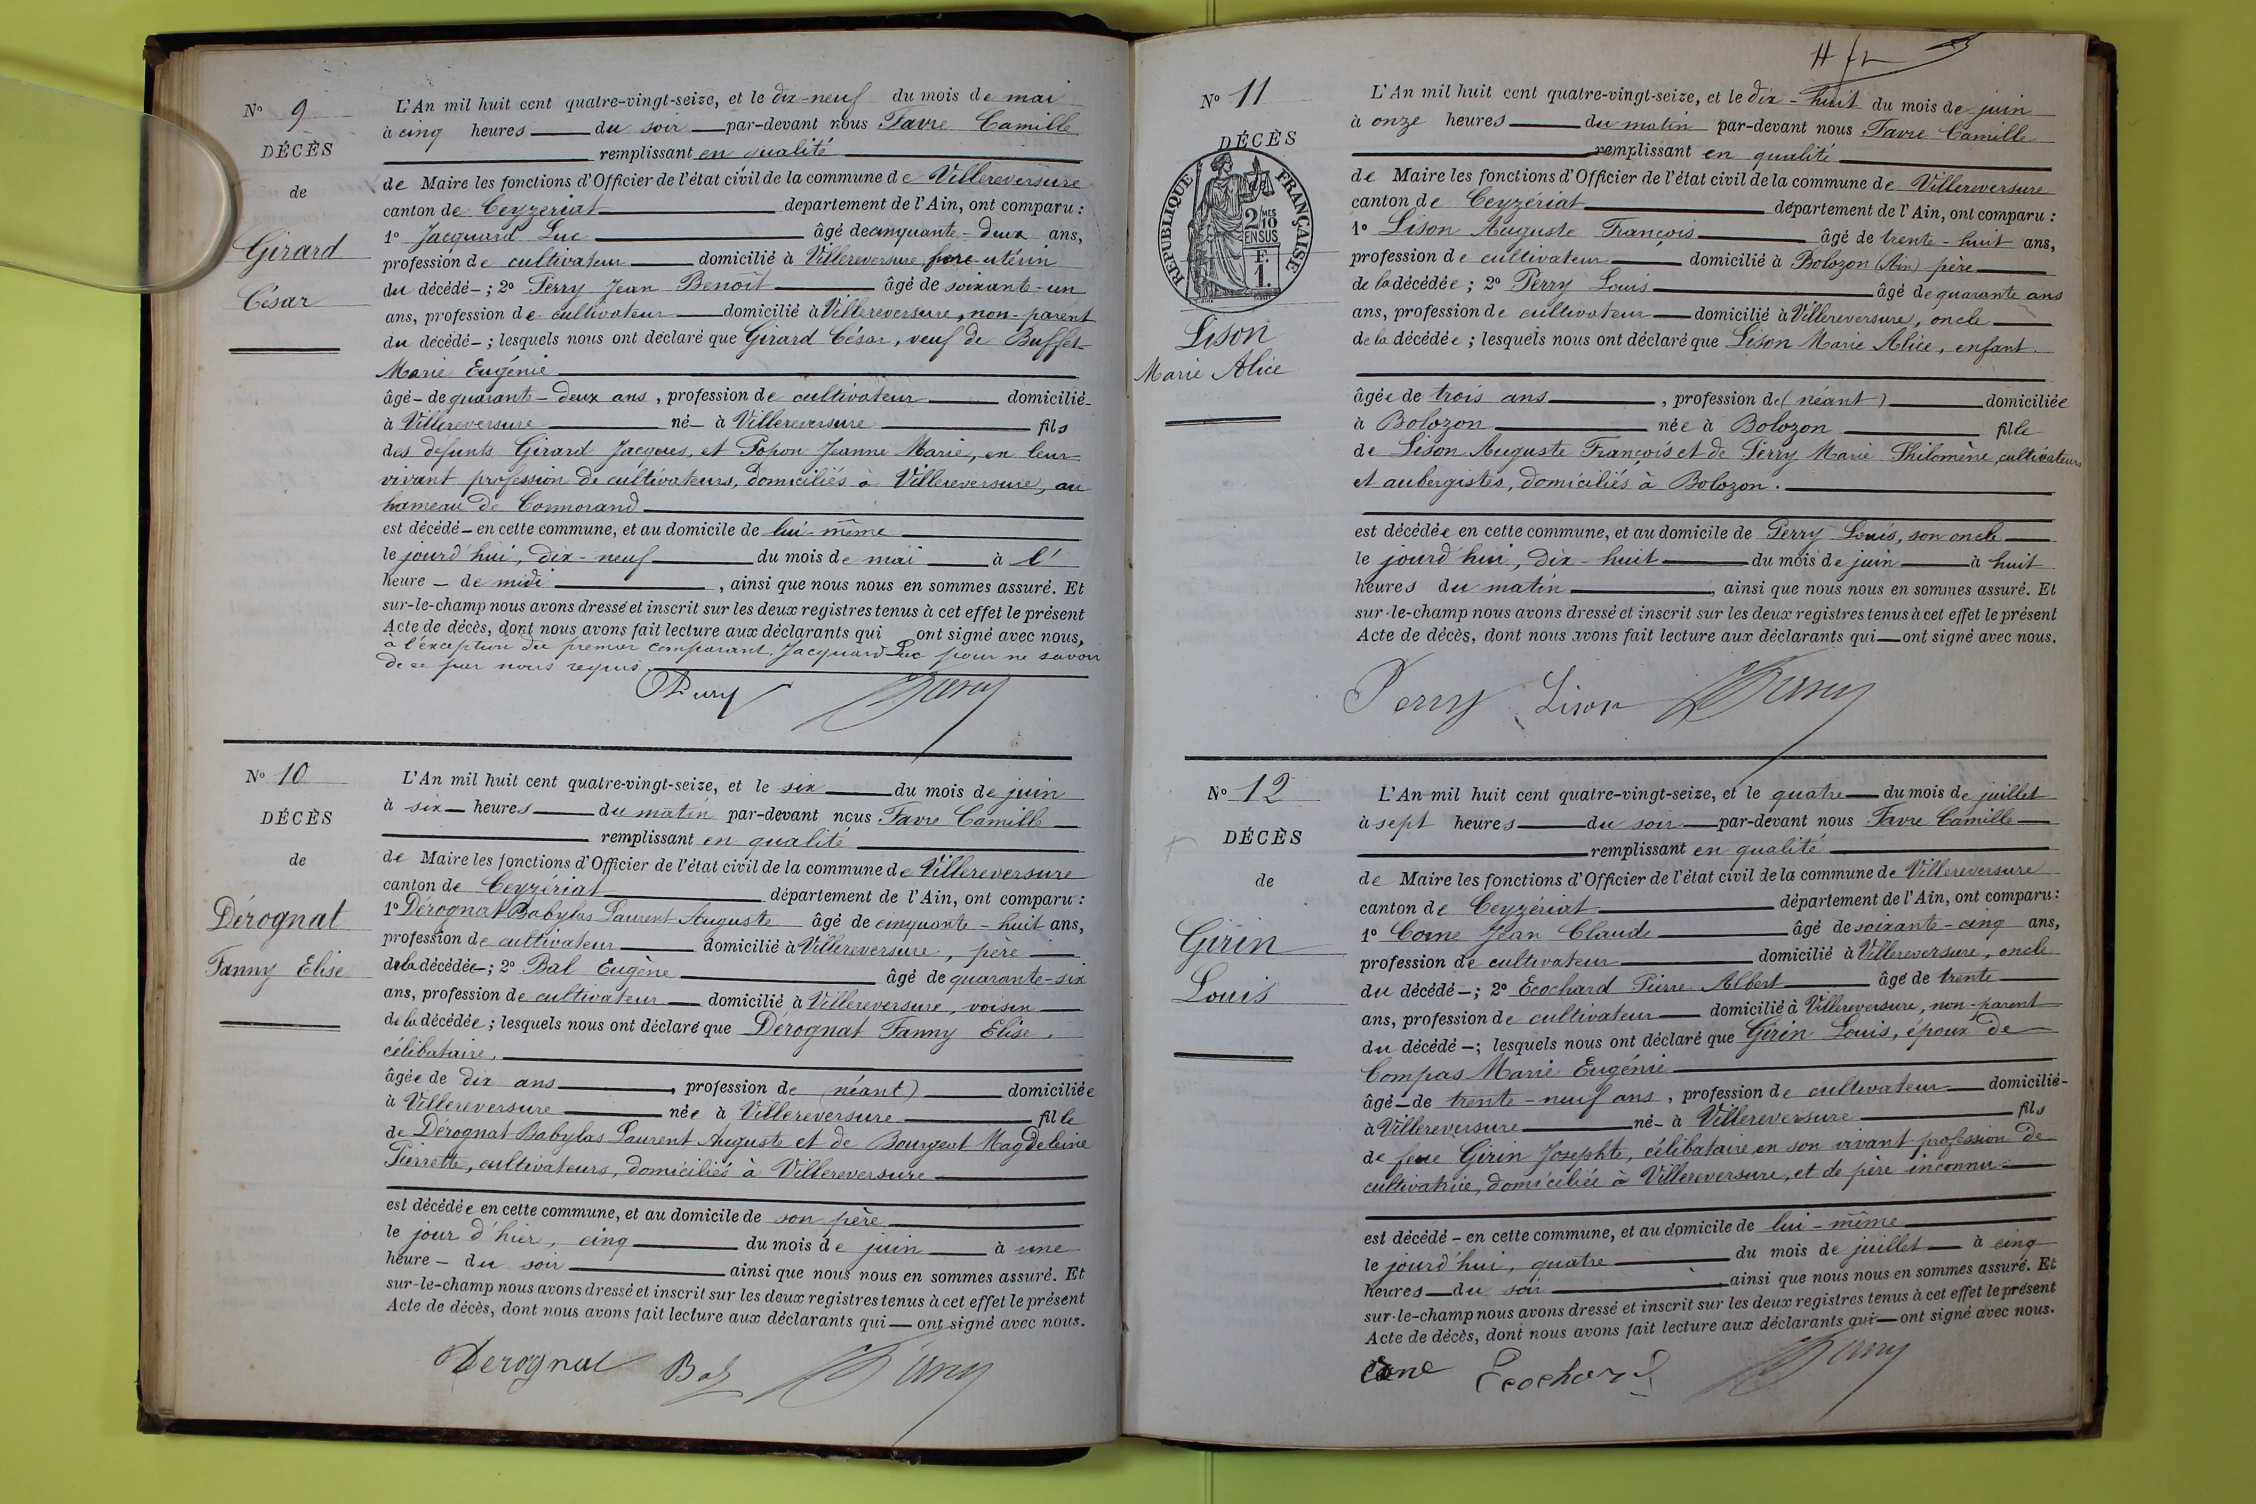 N° 9
DÉCÈS
de
Girard
César
L'An mil huit cent quatre-vingt-seize, et le dix-neuf du mois de mai
à cinq heures du soir par-devant nous Favre Camille
remplissant en qualité
de Maire les fonctions d'Officier de l'état civil de la commune de Villereversure
canton de Ceyzériat département de l'Ain, ont comparu :
1° Jacquard Luc âgé de cinquante-deux ans,
profession de cultivateur domicilié à Villereversure, frère utérin
du décédé ; 2° Perry Jean Benoît âgé de soixante-un
ans, profession de cultivateur domicilié à Villereversure, non-parent
du décédé ; lesquels nous ont déclaré que Girard César, veuf de Buffet
Marie Eugénie
âgé de quarante-deux ans, profession de cultivateur domicilié
à Villereversure né à Villereversure fils
des défunts Girard Jacques, et Popon Jeanne Marie, en leur
vivant profession de cultivateurs, domiciliés à Villereversure, au
hameau de Conmorand
est décédé en cette commune, et au domicile de lui-même
le jourd'hui, dix-neuf du mois de mai à l'
heure de midi, ainsi que nous nous en sommes assuré. Et
sur-le-champ nous avons dressé et inscrit sur les deux registres tenus à cet effet le présent
Acte de décès, dont nous avons fait lecture aux déclarants qui ont signé avec nous,
à l'exception du premier comparant, Jacquard Luc pour ne savoir
de ce par nous requis.
Perry Favre
N° 10
DÉCÈS
de
Dérognat
Fanny Elise
L'An mil huit cent quatre-vingt-seize, et le six du mois de juin
à six heures du matin par-devant nous Favre Camille
remplissant en qualité
de Maire les fonctions d'Officier de l'état civil de la commune de Villereversure
canton de Ceyzériat département de l'Ain, ont comparu :
1° Dérognat Babylas Laurent Auguste âgé de cinquante-huit ans,
profession de cultivateur domicilié à Villereversure, père
de la décédée ; 2° Bal Eugène âgé de quarante-six
ans, profession de cultivateur domicilié à Villereversure, voisin
de la décédée ; lesquels nous ont déclaré que Dérognat Fanny Elise,
célibataire,
âgée de dix ans, profession de (néant) domiciliée
à Villereversure née à Villereversure fille
de Dérognat Babylas Laurent Auguste et de Bourgeat Magdeleine
Pierrette, cultivateurs, domiciliés à Villereversure
est décédée en cette commune, et au domicile de son père
le jour d'hier, cinq du mois de juin à une
heure du soir ainsi que nous nous en sommes assuré. Et
sur-le-champ nous avons dressé et inscrit sur les deux registres tenus à cet effet le présent
Acte de décès, dont nous avons fait lecture aux déclarants qui ont signé avec nous.
Derognat Bal Favre
N° 11
DÉCÈS
RÉPUBLIQUE FRANÇAISE
2 MES 10
EN SUS
F.
1.
Lison
Marie Alice
L'An mil huit cent quatre-vingt-seize, et le dix-huit du mois de juin
à onze heures du matin par-devant nous Favre Camille
remplissant en qualité
de Maire les fonctions d'Officier de l'état civil de la commune de Villereversure
canton de Ceyzériat département de l'Ain, ont comparu :
1° Lison Auguste François âgé de trente-huit ans,
profession de cultivateur domicilié à Bolozon (Ain) père
de la décédée ; 2° Perry Louis âgé de quarante ans
ans, profession de cultivateur domicilié à Villereversure, oncle
de la décédée ; lesquels nous ont déclaré que Lison Marie Alice, enfant.
âgée de trois ans, profession de (néant) domiciliée
à Bolozon née à Bolozon fille
de Lison Auguste François et de Perry Marie Philomène, cultivateurs
et aubergistes, domiciliés à Bolozon.
est décédée en cette commune, et au domicile de Perry Louis, son oncle
le jourd'hui, dix-huit du mois de juin à huit
heures du matin, ainsi que nous nous en sommes assuré. Et
sur-le-champ nous avons dressé et inscrit sur les deux registres tenus à cet effet le présent
Acte de décès, dont nous avons fait lecture aux déclarants qui ont signé avec nous.
Perry Lison Favre
N° 12
DÉCÈS
de
Girin
Louis
L'An mil huit cent quatre-vingt-seize, et le quatre du mois de juillet
à sept heures du soir par-devant nous Favre Camille
remplissant en qualité
de Maire les fonctions d'Officier de l'état civil de la commune de Villereversure
canton de Ceyzériat département de l'Ain, ont comparu :
1° Corne Jean Claude âgé de soixante-cinq ans,
profession de cultivateur domicilié à Villereversure, oncle
du décédé ; 2° Ecochard Pierre Albert âgé de trente
ans, profession de cultivateur domicilié à Villereversure, non-parent
du décédé ; lesquels nous ont déclaré que Girin Louis, époux de
Compas Marie Eugénie
âgé de trente-neuf ans, profession de cultivateur domicilié
à Villereversure né à Villereversure fils
de feue Girin Josephte, célibataire en son vivant profession de
cultivatrice, domiciliée à Villereversure, et de père inconnu.
est décédé en cette commune, et au domicile de lui-même
le jourd'hui, quatre du mois de juillet à cinq
heures du soir, ainsi que nous nous en sommes assuré. Et
sur-le-champ nous avons dressé et inscrit sur les deux registres tenus à cet effet le présent
Acte de décès, dont nous avons fait lecture aux déclarants qui ont signé avec nous.
Corne Ecochard Favre